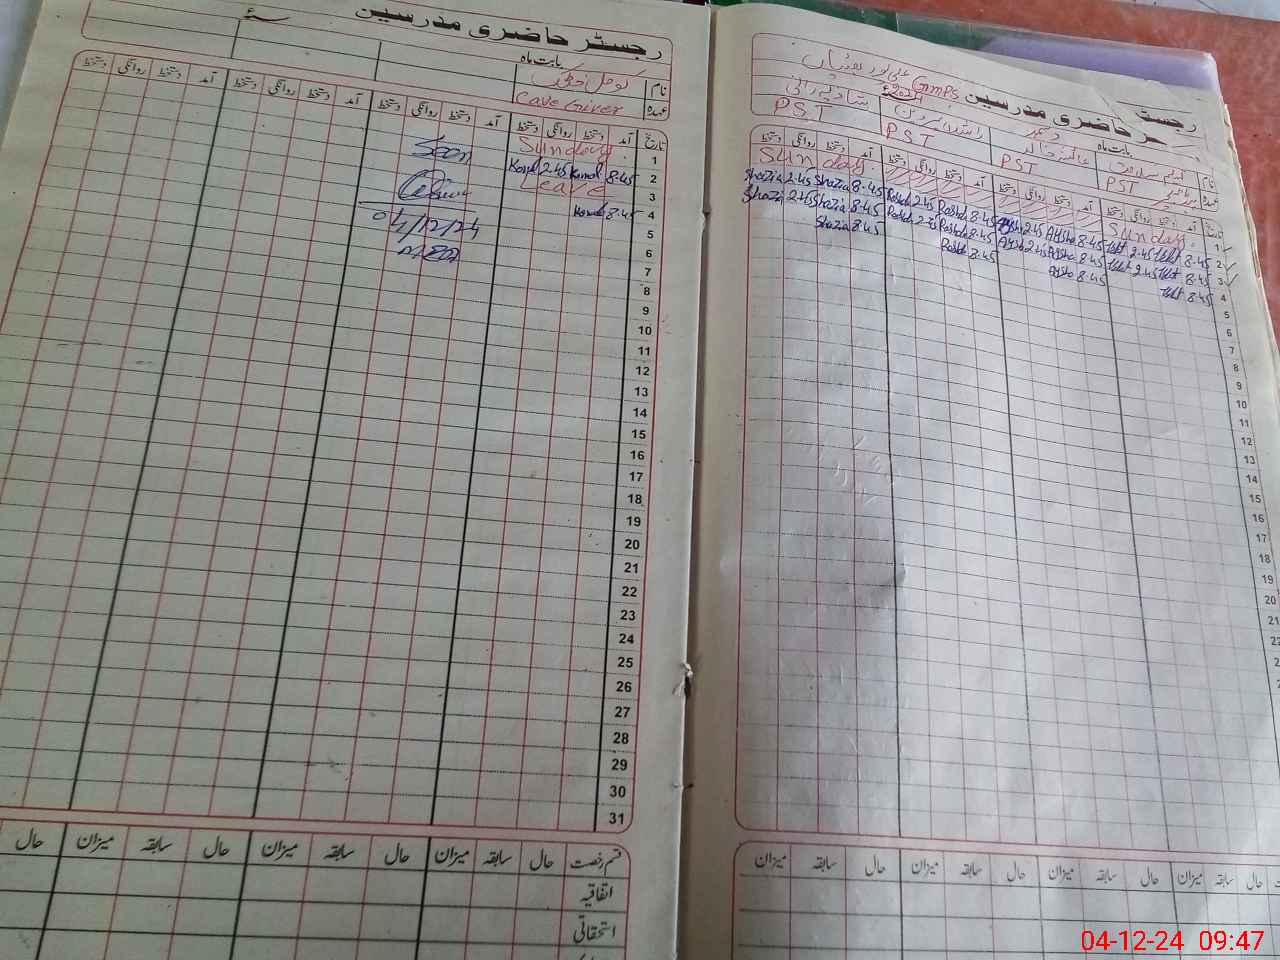 رجسٹر حاضری مدرسین
بابت ماہ
نام
عہدہ
Cave Giver
تاریخ آمد دستخط روانگی دستخط آمد دستخط روانگی دستخط آمد دستخط روانگی دستخط آمد دستخط روانگی دستخط
1 Sunday
2 8.45 Komal 2.45 Komal
3 Leave
4 8.45 Komal
Seen
04/12/24
5
6
7
8
9
10
11
12
13
14
15
16
17
18
19
20
21
22
23
24
25
26
27
28
29
30
31
قسم رخصت حال سابقہ میزان حال سابقہ میزان حال سابقہ میزان حال
اتفاقیہ
استحقاقی
رجسٹر حاضری مدرسین
GMPS
2024
بابت ماہ دسمبر
نام
عہدہ PST PST PST PST
تاریخ آمد دستخط روانگی دستخط آمد دستخط روانگی دستخط آمد دستخط روانگی دستخط آمد دستخط روانگی دستخط
1 Sunday Sunday
2 8.45 2.45 8.45 Aysha 2.45 8.45 Rashda 2.45 8.45 Shazia 2.45 Shazia
3 8.45 2.45 8.45 Aysha 2.45 8.45 Rashda 2.45 8.45 Shazia 2.45 Shazia
4 8.45 8.45 Aysha 8.45 Rashda 8.45 Shazia
5
6
7
8
9
10
11
12
13
14
15
16
17
18
19
20
21
22
حال سابقہ میزان حال سابقہ میزان حال سابقہ میزان حال سابقہ میزان
04-12-24 09:47